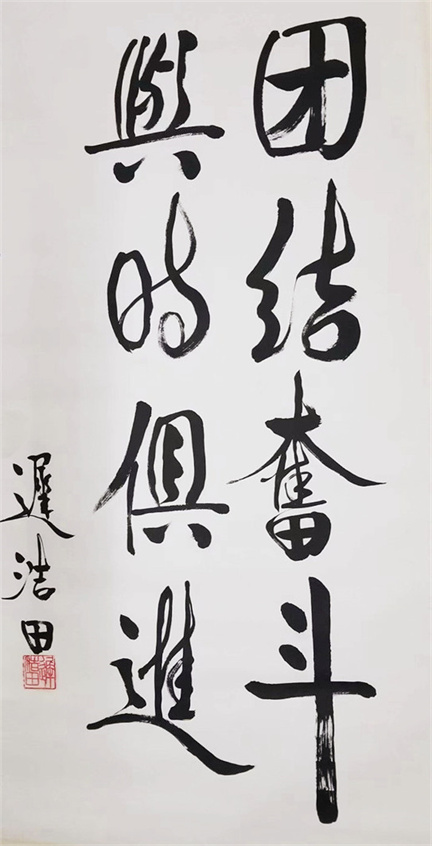 团结奮斗
與时俱進
遲浩田